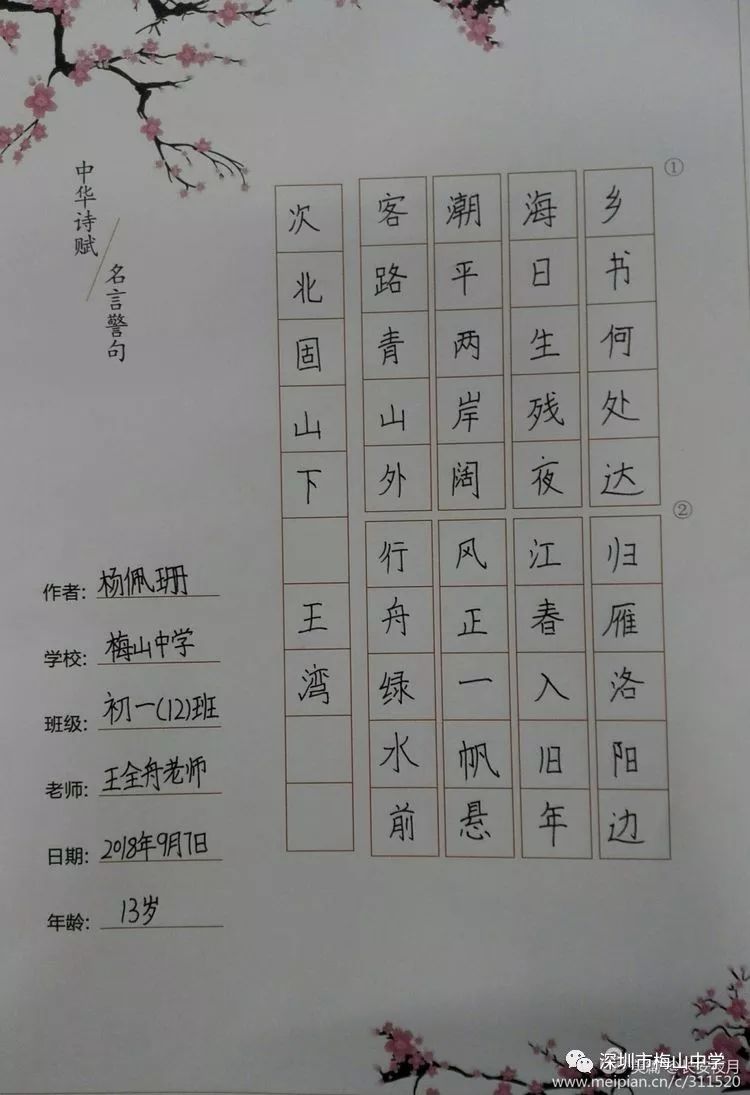 中华诗赋
名言警句
次北固山下 王湾
①
客路青山外
潮平两岸阔
海日生残夜
乡书何处达
②
行舟绿水前
风正一帆悬
江春入旧年
归雁洛阳边
作者: 杨佩珊
学校: 梅山中学
班级: 初一(12)班
老师: 王全舟老师
日期: 2018年9月7日
年龄: 13岁
深圳市梅山中学
www.meipian.cn/c/311520